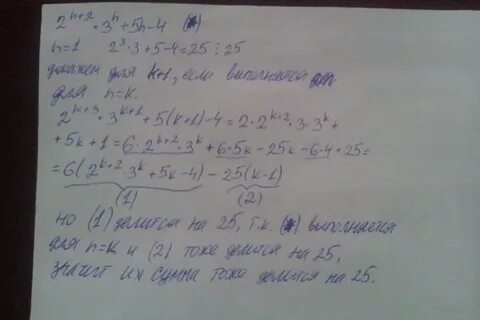 2^{n+2} · 3^n + 5n - 4 (*)
n=1 2^3 · 3 + 5 - 4 = 25 ⋮ 25
докажем для k+1, если выполняется
для n=k.
2^{k+3} · 3^{k+1} + 5(k+1) - 4 = 2 · 2^{k+2} · 3 · 3^k +
+ 5k + 1 = 6 · 2^{k+2} · 3^k + 6 · 5k - 25k - 6 · 4 + 25 =
= 6(2^{k+2} · 3^k + 5k - 4) - 25(k-1)
(1) (2)
но (1) делится на 25, т.к. (*) выполняется
для n=k и (2) тоже делится на 25,
значит их сумма тоже делится на 25.